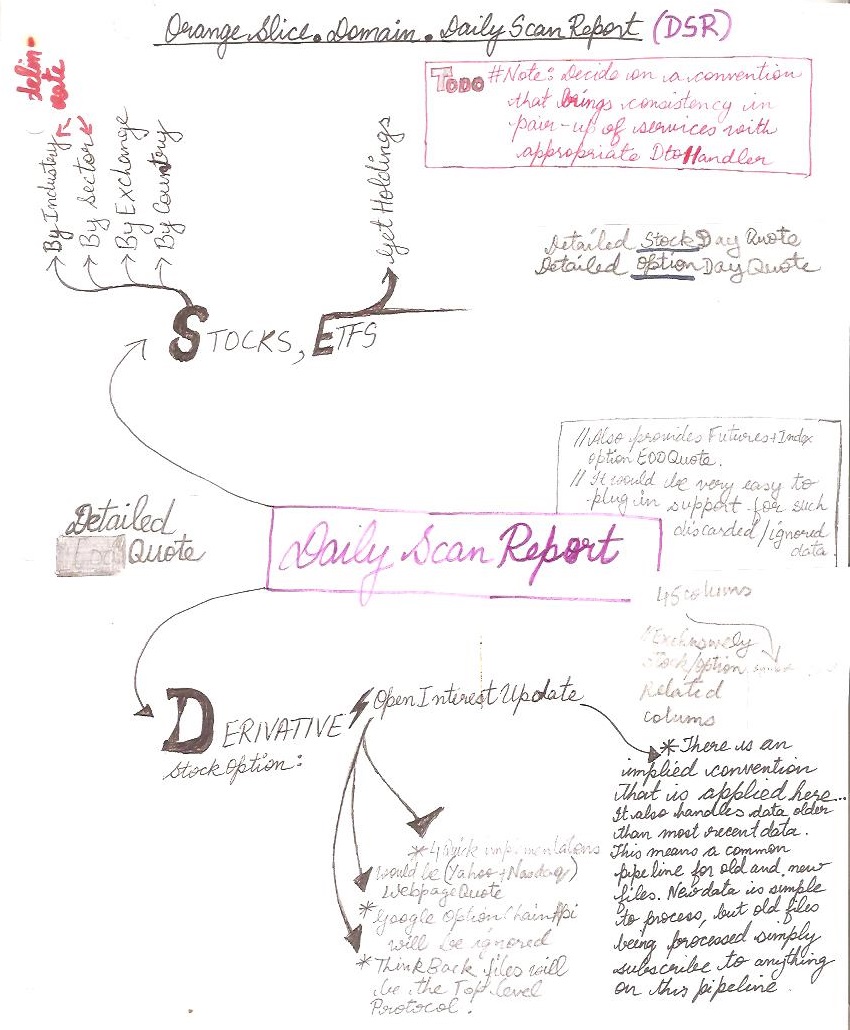 Orange Slice. Domain. Daily Scan Report (DSR)
delin-
eate
TODO #Note: Decide on a convention
that brings consistency in
pair-up of services with
appropriate DtoHandler
By Industry
By Sector
By Exchange
By Country
Get Holdings
Detailed Stock Day Quote
Detailed Option Day Quote
STOCKS, ETFS
// Also provides Futures+Index
option EODQuote.
// It would be very easy to
plug in support for such
discarded/ignored
data.
Detailed
Quote
Daily Scan Report
45 colums
Exclusively
Stock/option
Related
colums
DERIVATIVE
Stock Option:
Open Interest Update
* There is an
implied convention
that is applied here...
It also handles data older
than most recent data.
This means a common
pipeline for old and new
files. New data is simple
to process, but old files
being processed simply
subscribe to anything
on this pipeline.
* implementations
would be (Yahoo+Nasdaq)
WebpageQuote
* Google OptionChainApi
will be ignored
* ThinkBack files will
be the Top Level
Protocol.